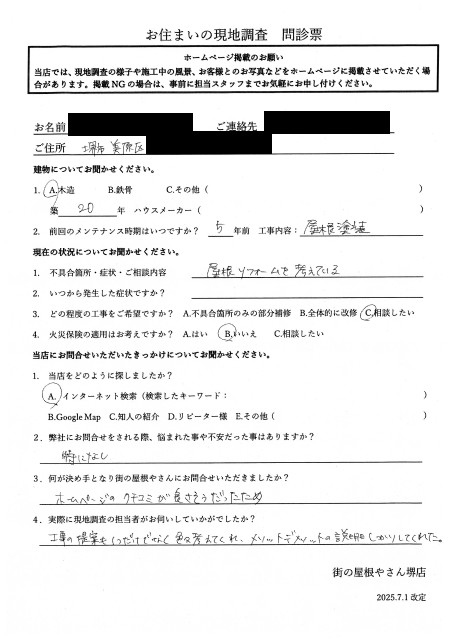 お住まいの現地調査 問診票
ホームページ掲載のお願い
当店では、現地調査の様子や施工中の風景、お客様とのお写真などをホームページに掲載させていただく場
合があります。掲載NGの場合は、事前に担当スタッフまでお気軽にお申し付けください。
お名前 ご連絡先
ご住所 堺市 美原区
建物についてお聞かせください。
1. A.木造 B.鉄骨 C.その他（ ）
築 20 年 ハウスメーカー（ ）
2. 前回のメンテナンス時期はいつですか？ 5 年前 工事内容：屋根塗装
現在の状況についてお聞かせください。
1. 不具合箇所・症状・ご相談内容 屋根リフォームを考えている
2. いつから発生した症状ですか？
3. どの程度の工事をご希望ですか？ A.不具合箇所のみの部分補修 B.全体的に改修 C.相談したい
4. 火災保険の適用はお考えですか？ A.はい B.いいえ C.相談したい
当店にお問合せいただいたきっかけについてお聞かせください。
1. 当店をどのように探しましたか？
A. インターネット検索（検索したキーワード： ）
B.Google Map C.知人の紹介 D.リピーター様 E.その他（ ）
2．弊社にお問合せをされる際、悩まれた事や不安だった事はありますか？
特になし
3．何が決め手となり街の屋根やさんにお問合せいただきましたか？
ホームページの クチコミが良さそうだったため
4．実際に現地調査の担当者がお伺いしていかがでしたか？
工事の提案も1つだけでなく色々考えてくれ、メリットデメリットの説明もしっかりしてくれた。
街の屋根やさん堺店
2025.7.1 改定